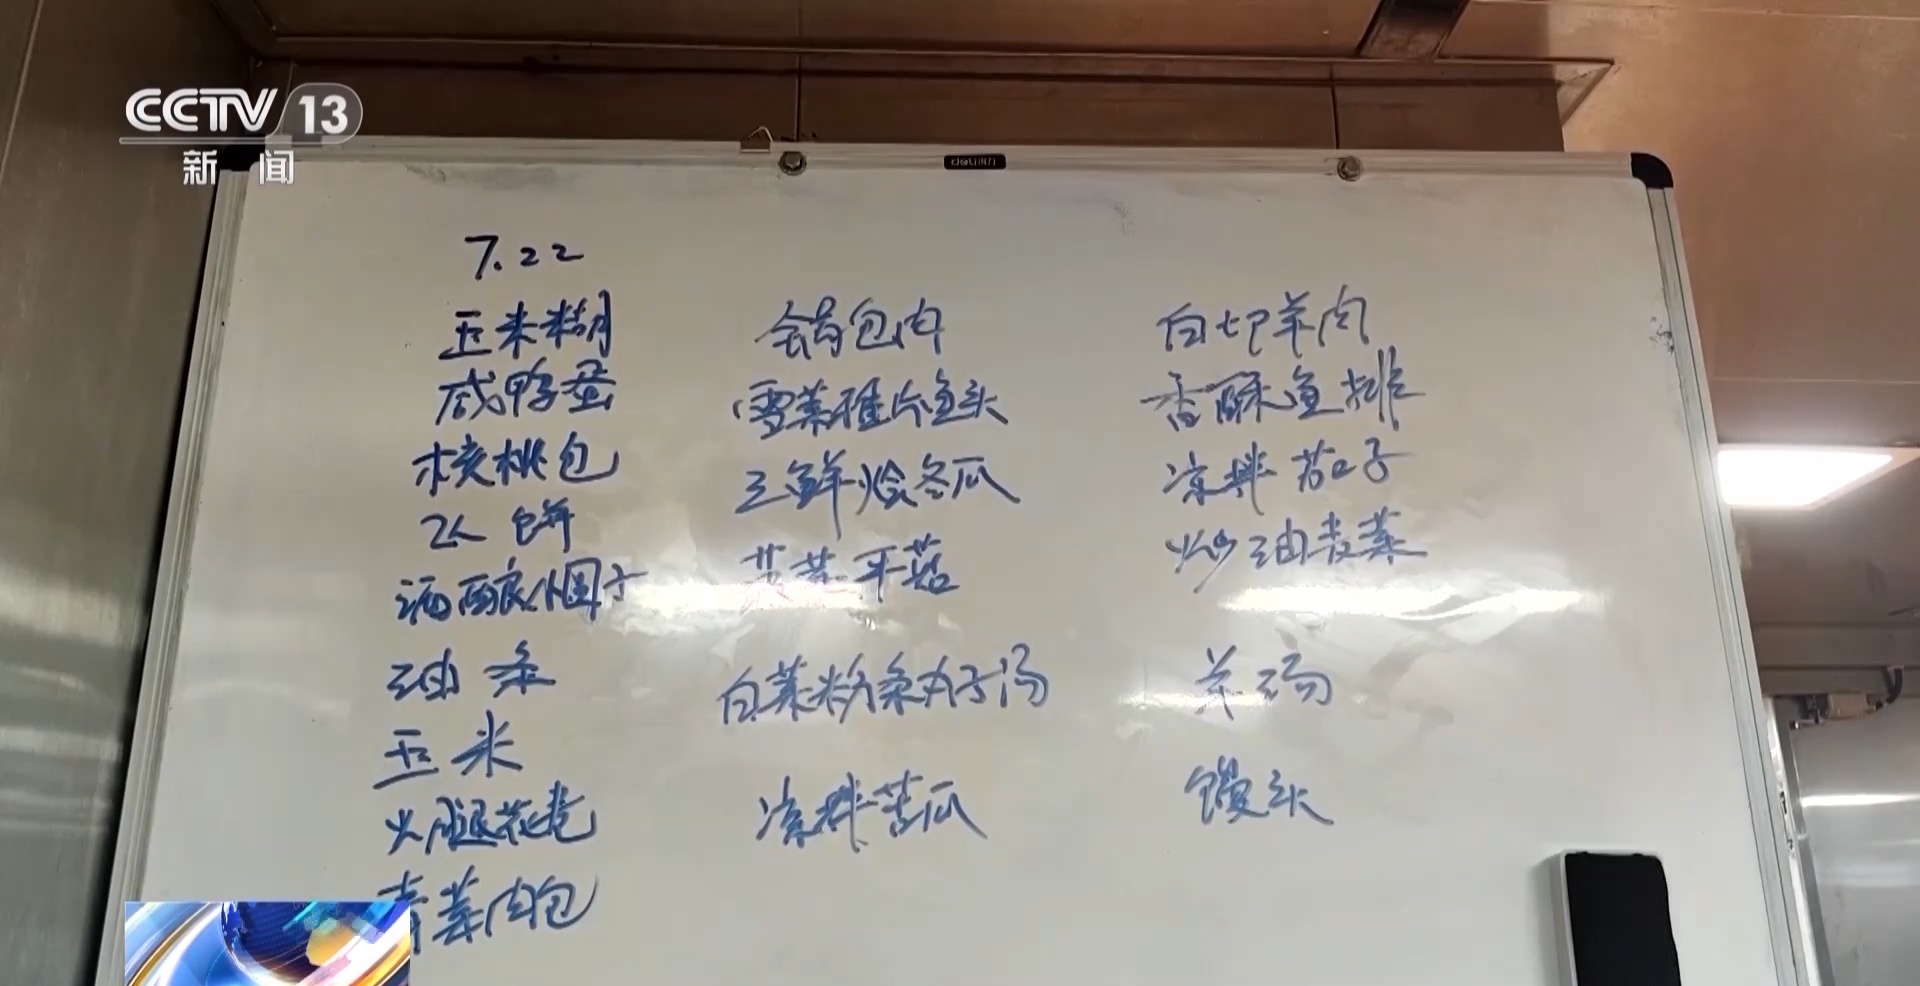 CCTV 13
新闻
deli得力
7.22
玉米糊
咸鸭蛋
核桃包
饼
酒酿小圆子
油条
玉米
火腿花卷
青菜肉包
锅包肉
雪菜雅片鱼头
三鲜烩冬瓜
平菇
白菜粉条丸子汤
凉拌苦瓜
白切羊肉
香酥鱼排
凉拌茄子
炒油青菜
羊汤
馒头